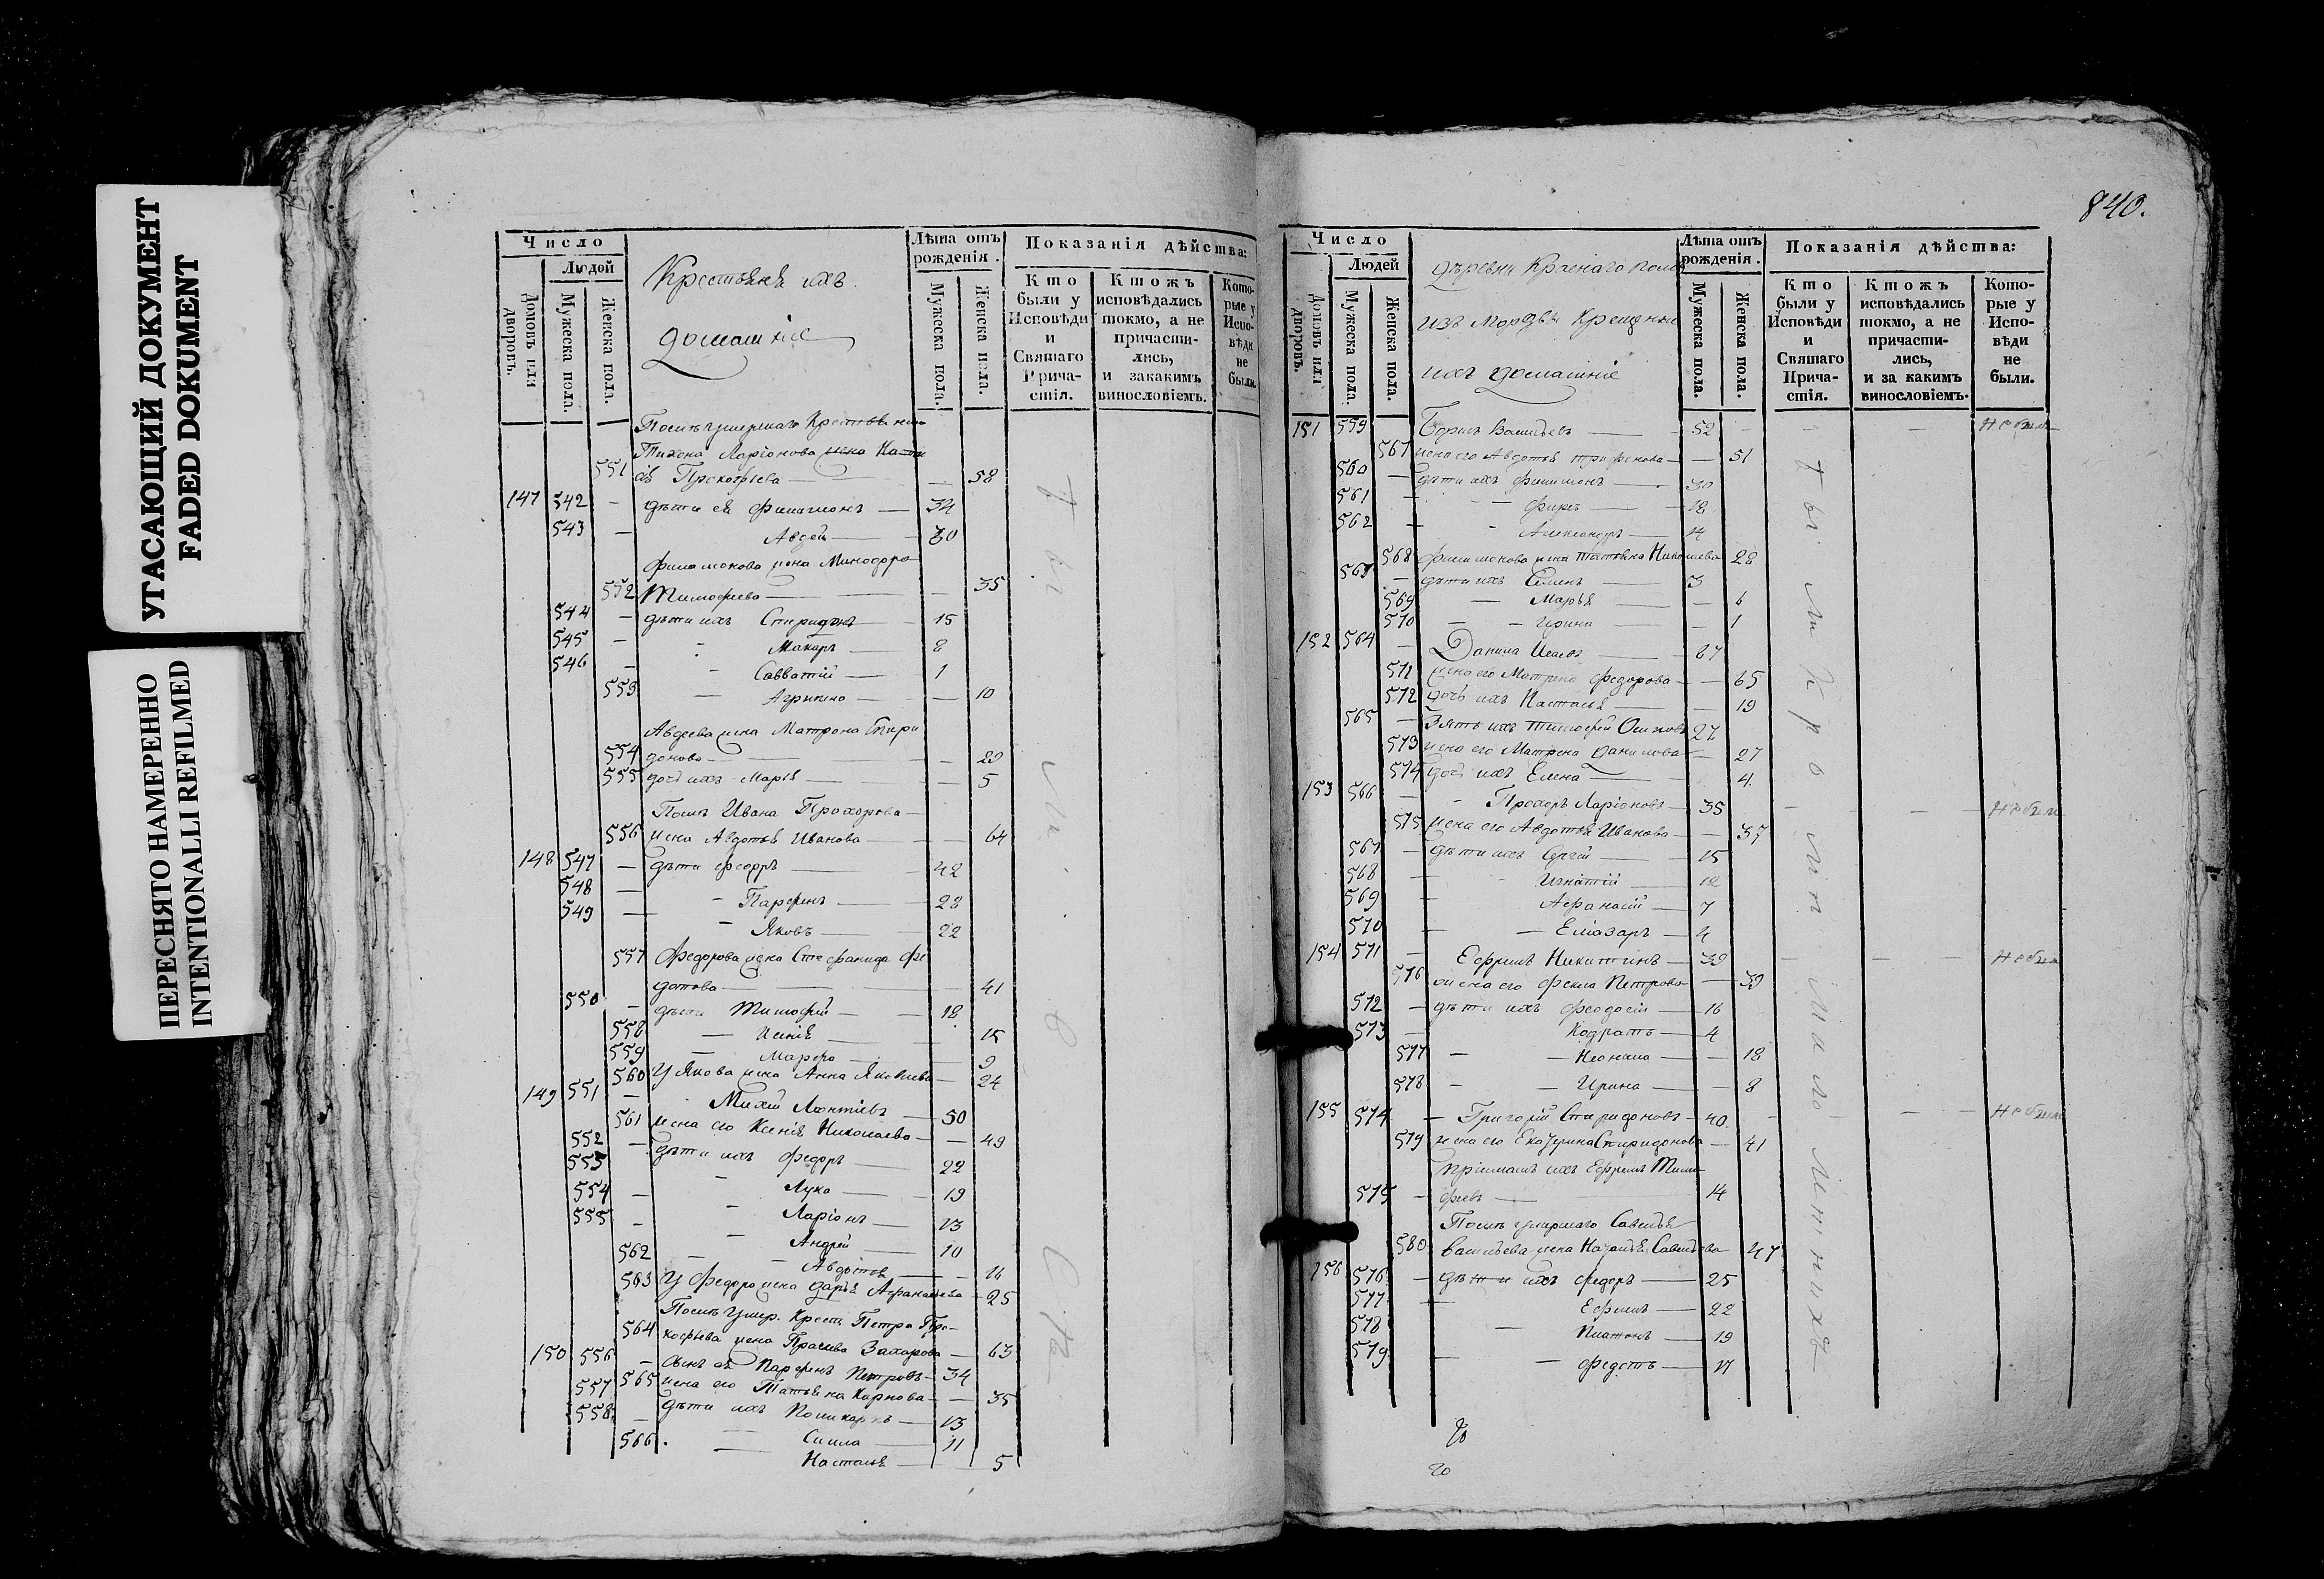 УГАСАЮЩИЙ ДОКУМЕНТ
FADED DOKUMENT
ПЕРЕСНЯТО НАМЕРЕННО
INTENTIONALLI REFILMED
Число
Людой
Домовъ или дворовъ.
Мужеска пола.
Женска пола.
Крестьянѣ ихъ
домашніе
Лѣта отъ рожденія.
Мужеска пола.
Женска пола.
Показанія дѣйства:
Кто были у Исповѣди и Святаго Прича-стія.
Ктожъ исповѣдались токмо, а не причасти-лись, и закакимъ винословіемъ.
Кото-рые у Испо-вѣди не были.
Послѣ умершаго
Тихона Ларіонова жена
551 Прокофьева — 58
147 542 — дѣти ея Филимонъ — 34
543 — Авдей — 30
Филимонова жена Минодора
552 Тимофеева — 35
544 — дѣти ихъ Спиридонъ — 15
545 — Макаръ — 8
546 — Савватій — 1
553 — Агрипина — 10
Авдеева жена Матрона Спири
554 донова — 29
555 дочь ихъ Марія — 5
Послѣ Ивана Прохорова
556 жена Авдотья Иванова — 64
148 547 — дѣти Федоръ — 42
548 — Парфенъ — 28
549 — Яковъ — 22
557 Федорова жена Стефанида Фе
дотова — 41
550 — дѣти Тимофей — 18
558 — Ксенія — 15
559 — Марфа — 9
560 У Якова жена Анна Яковлева — 24
149 551 — Михей Леонтіевъ — 50
561 жена его Ксенія Николаева — 49
552 — дѣти ихъ Федоръ — 22
553 — Лука — 19
554 — Ларіонъ — 13
555 — Андрей — 10
562 — Авдотья — 16
563 У Федора жена Дарья Афанасьева 25
Послѣ умер. Крест. Петра Про-
564 кофьева жена Прасковья Захарова — 63
150 556 — сынъ ея Парфенъ Петровъ — 34
565 жена его Татьяна Карпова — 35
557 дѣти ихъ Поликарпъ — 13
558 — Сысила — 11
566 Настасья — 5
840.
Число
Людей
Домовъ или дворовъ.
Мужеска пола.
Женска пола.
деревни Краснаго
изъ Мордвы Крещеные
ихъ домашніе
Лѣта отъ рожденія.
Мужеска пола.
Женска пола.
Показанія дѣйства:
Кто были у Исповѣди и Святаго Прича-стія.
Ктожъ исповѣдались токмо, а не причасти-лись, и за какимъ винословіемъ.
Кото-рые у Испо-вѣди не были.
151 559 Борисъ Васильевъ — 52 — не были
567 жена его Авдотья Трифонова — 51
560 — дѣти ихъ Филимонъ — 30
561 — Фирсъ — 18
562 — Александръ — 14
568 Филимонова жена Татьяна Николаева 28
563 — дѣти ихъ Семенъ — 3
569 — Марья — 6
570 — Ирина — 1
152 564 — Данила Исаевъ — 67
571 жена его Матрена Федорова — 65
572 дочь ихъ Настасья — 19
565 — Зять ихъ Тимофей Осиповъ 27
573 жена его Матрена Данилова — 27
574 дочь ихъ Елена — 4
153 566 — Прохоръ Ларіоновъ — 35 — не были
575 жена его Авдотья Иванова — 37
567 — дѣти ихъ Сергей — 15
568 — Игнатій — 12
569 — Афанасій — 7
570 — Елиазаръ — 4
154 571 — Ефремъ Никитинъ — 39 — не были
576 жена его Фекла Петрова — 39
572 — дѣти ихъ Феодосій — 16
573 — Кодратъ — 4
577 — Неонила — 18
578 — Ирина — 8
155 574 — Григорій Спиридоновъ — 40 — не были
579 жена его Екатерина Спиридонова — 41
пріимашъ ихъ Ефремъ Тимо-
575 — феевъ — 14
Послѣ умершаго Савелья
580 Васильева жена Наталья Савельева 47
156 576 — дѣти ихъ Федоръ — 25
577 — Ефимъ — 22
578 — Платонъ — 19
579 — Федотъ — 17